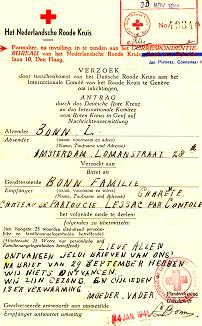 20 NOV 1940
Het Nederlandsche Roode Kruis
Formulier, na invulling, in te zenden aan het CORRESPONDENTIE-
BUREAU van het Nederlandsche Roode Kruis
laan 10, Den Haag.
VERZOEK
door tusschenkomst van het Duitsche Roode Kruis aan het
Internationale Comité van het Roode Kruis te Genève
om inlichtingen.
ANTRAG
durch das Deutsche Rote Kreuz
an das Internationale Komitee
vom Roten Kreuz in Genf auf
Nachrichtenvermittlung
Afzender BONN L.
Absender (naam, voornaam en adres)
(Name, Vorname und Adresse)
AMSTERDAM. LOMANSTRAAT
Verzoekt aan
Bittet an
Geadresseerde BONN FAMILIE
Empfänger (naam, voornaam en adres) CHARETE
(Name, Vorname und Adresse)
CHATEAU LESSAC PAR CONFOLE
het volgende mede te deelen:
folgendes zu übermitteln:
(ten hoogste 25 woorden uitsluitend persoonlijke of
familieaangelegenheden betreffende)
(Höchstzahl 25 Worte nur persönliche und
Familienangelegenheiten betreffend)
LIEVE ALLEN
ONTVANGEN JELUI BRIEVEN VAN ONS
NA BRIEF VAN 29 SEPTEMBER HEBBEN
WIJ NIETS ONTVANGEN.
WIJ ZIJN GEZOND. EN JULLIE
IS ER VERWARMING
MOEDER. VADER
Geadresseerde antwoordt aan ommezijde
Empfänger antwortet umseitig